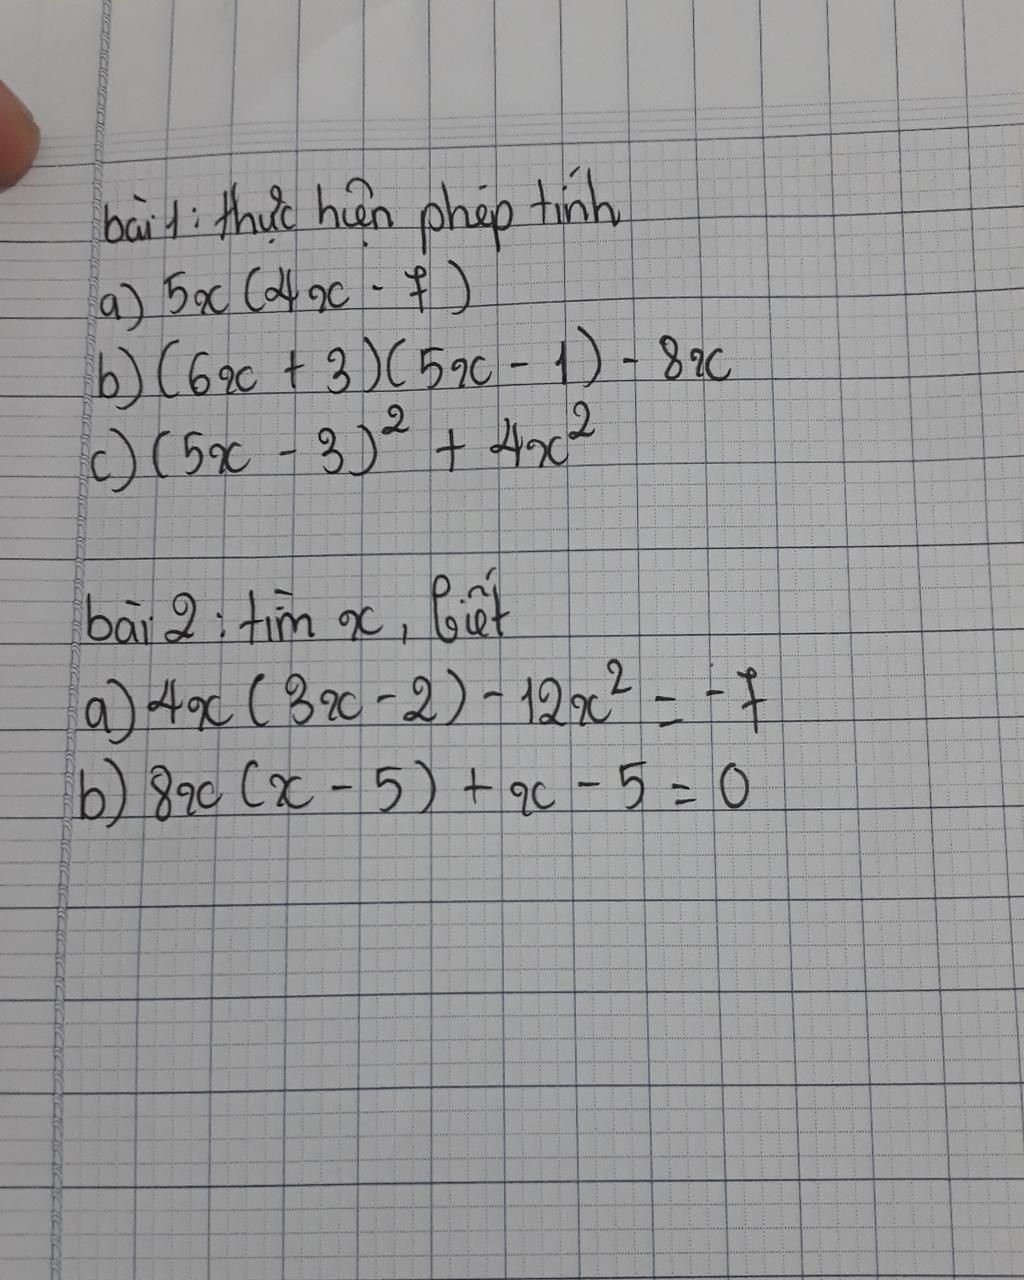 bài 1: thực hiện phép tính
a) 5x (4x - 7)
b) (6x + 3)(5x - 1) - 8x
c) (5x - 3)² + 4x²
bài 2: tìm x, biết
a) 4x (3x - 2) - 12x² = -7
b) 8x (x - 5) + x - 5 = 0